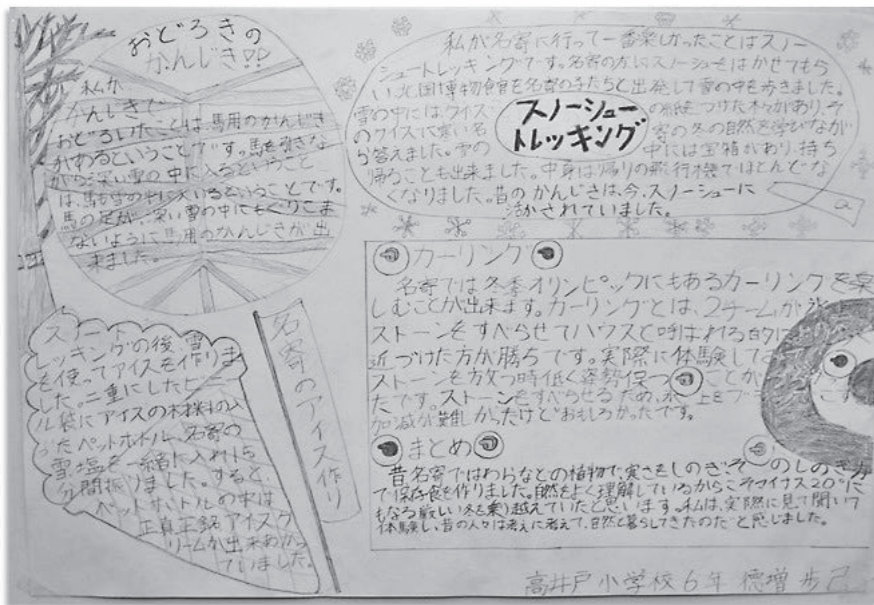 おどろきの
かんじき!!
私が
かんじきで
おどろいたことは、馬用のかんじき
があるということです。馬を引きな
がら深い雪の中に入るということ
は、馬も雪の中に入るということです。
馬の足が、深い雪の中にもぐりこま
ないように馬用のかんじきが出
来ました。
私が名寄に行って一番楽しかったことはスノー
シュートレッキングです。名寄の方にスノーシューをはかせてもら
い、北国博物館を名寄の子たちと出発して雪の中を歩きました。
雪の中には、クイズの紙をつけた木々があり、そ
のクイズに寒い名寄の冬の自然を学びなが
ら答えました。雪の中には宝箱があり、持ち
帰ることも出来ました。中身は帰りの飛行機でほとんどな
くなりました。昔のかんじきは、今、スノーシューに
活かされていました。
スノーシュー
トレッキング
カーリング
名寄では冬季オリンピックにもあるカーリングを楽
しむことが出来ます。カーリングとは、2チームが氷
ストーンをすべらせてハウスと呼ばれる的に
近づけた方が勝ちです。実際に体験して
ストーンを放つ時低く姿勢保つことが
たです。ストーンをすべらせるため、氷上をブ
加減が難しかったけどおもしろかったです。
まとめ
昔名寄ではわらなどの植物で、寒さをしのぎ、そ のしのぎ方
で保存食を作りました。自然をよく理解しているからこそマイナス20°に
もなる厳しい冬を乗り越えていたと思います。私は、実際に見て聞いて
体験し、昔の人々は考えに考えて、自然と暮らしてきたのだと感じました。
名寄のアイス作り
スノート
レッキングの後、雪
を使ってアイスを作りま
した。二重にしたビニー
ル袋にアイスの材料の入
ったペットボトル、名寄の
雪、塩を一緒に入れ15
分間振りました。すると、
ペットボトルの中は
正真正銘アイスク
リームが出来あがっ
ていました。
高井戸小学校6年 徳増 歩己